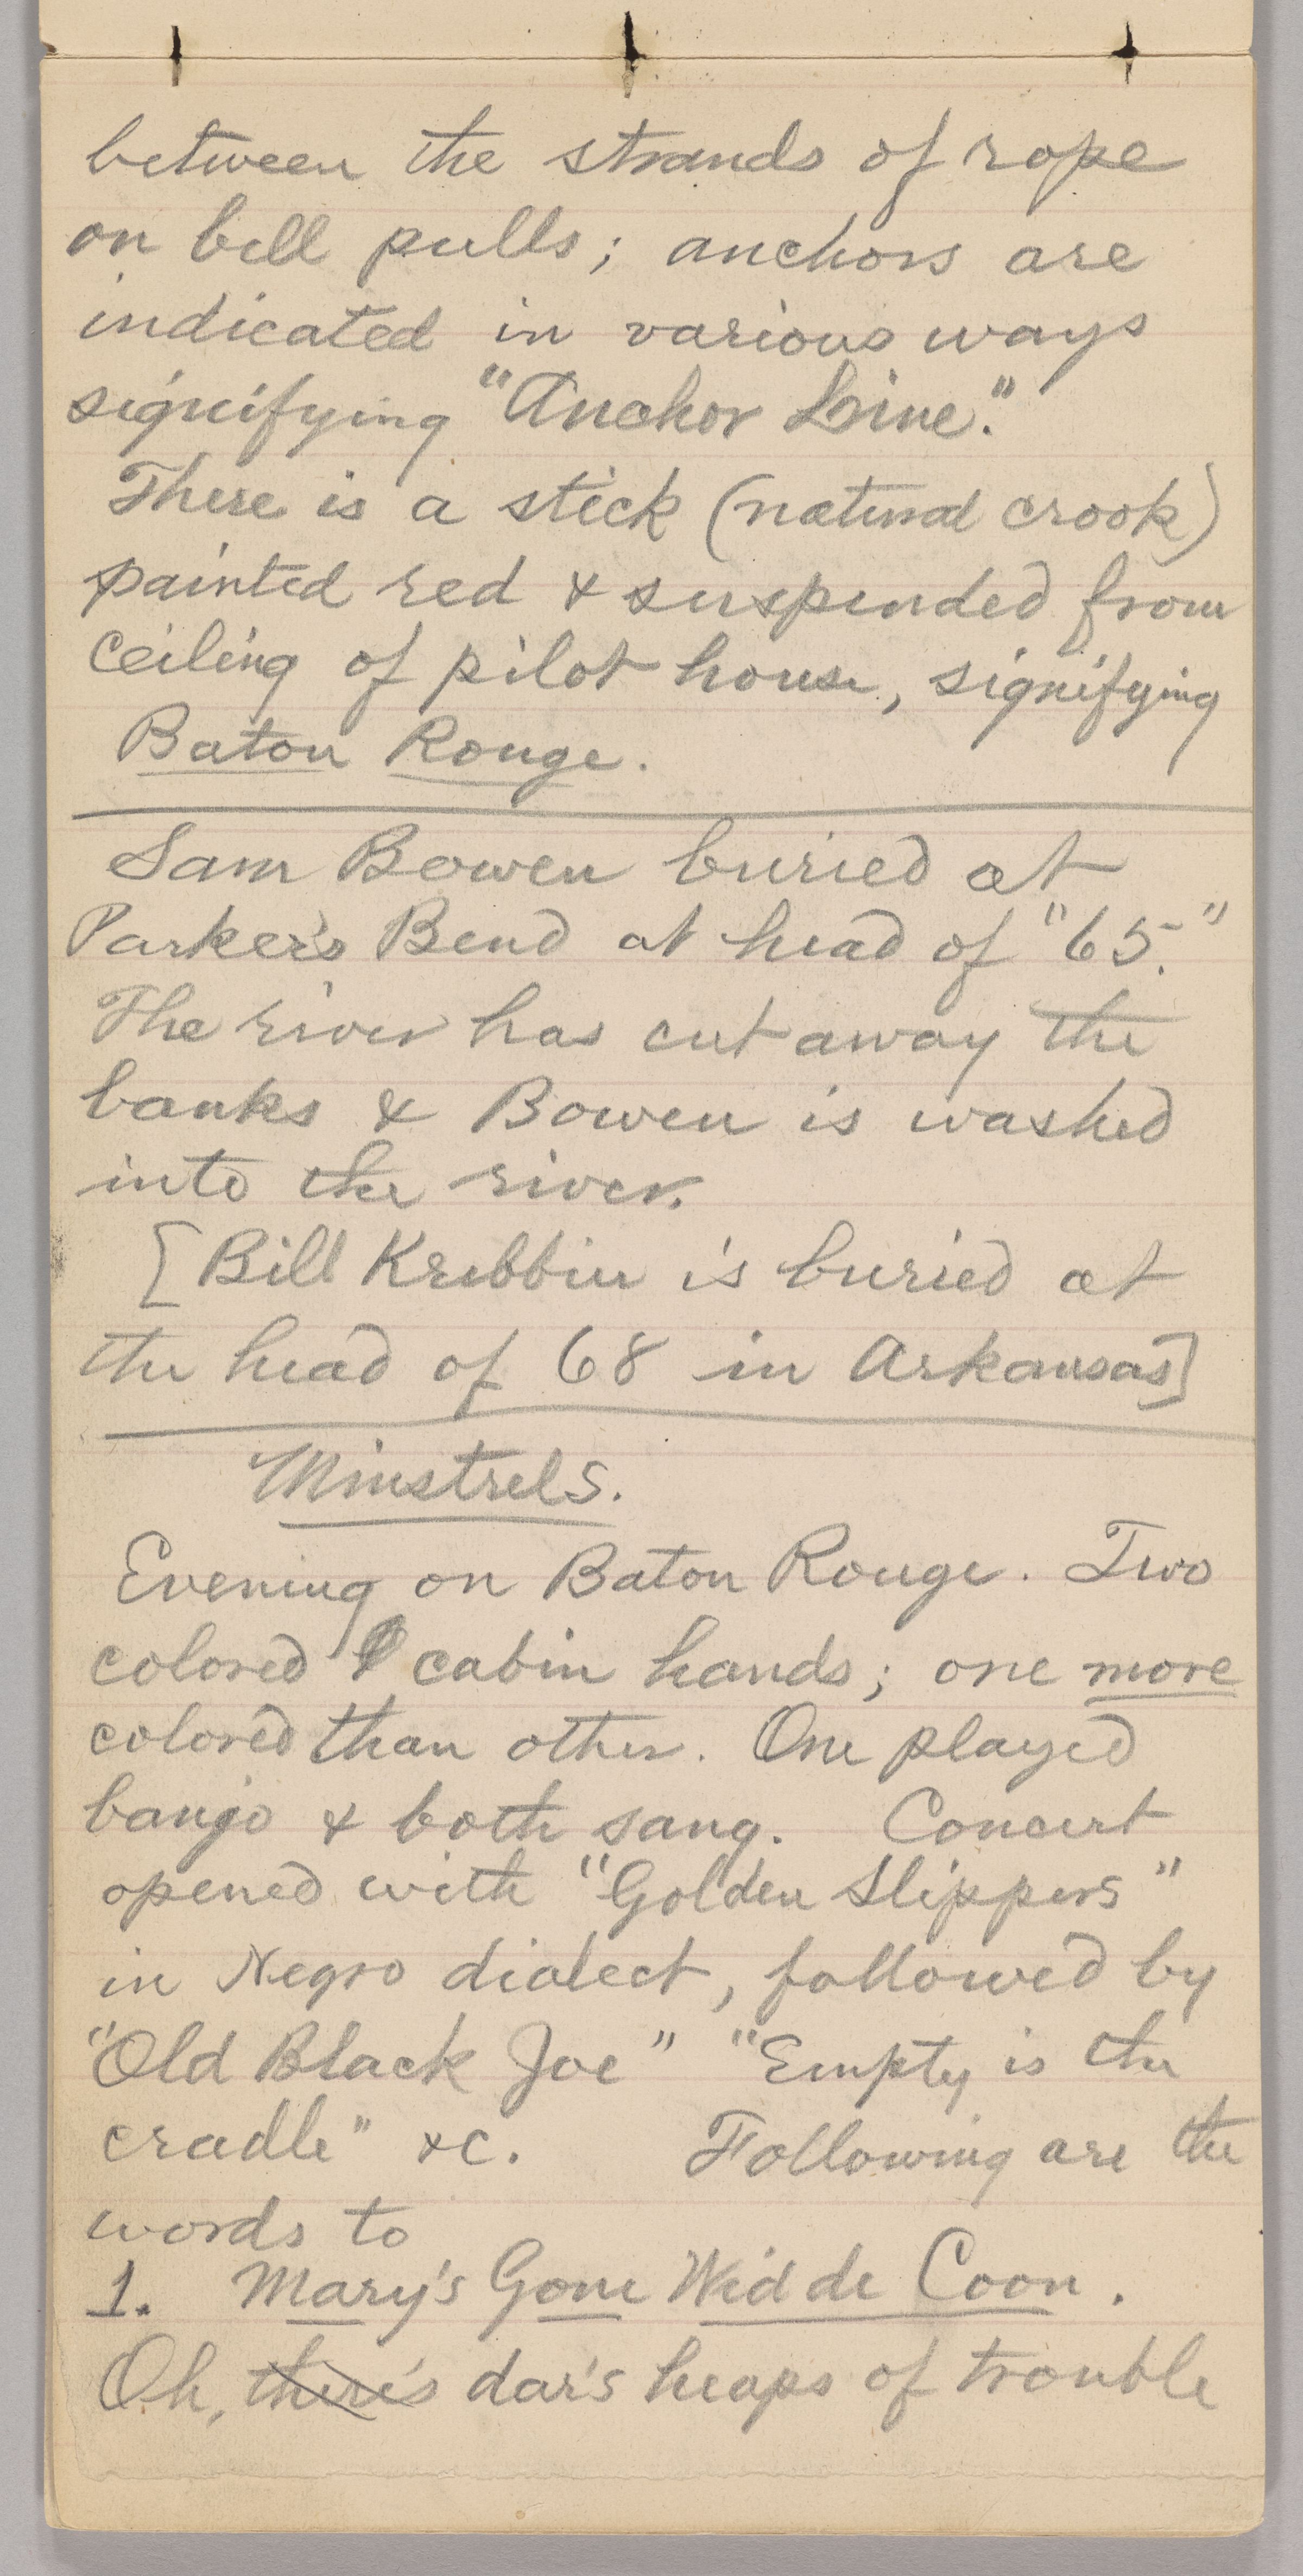 between the strands of rope
on bell pulls; anchors are
indicated in various ways
signifying "Anchor Line."
There is a stick (natural crook)
painted red & suspended from
ceiling of pilot house, signifying
Baton Rouge.
Sam Bowen buried at
Parker's Bend at head of "65."
The river has cut away the
banks & Bowen is washed
into the river.
[Bill Kribbin is buried at
the head of 68 in Arkansas]
Minstrels.
Evening on Baton Rouge. Two
colored cabin hands; one more
colored than other. One played
banjo & both sang. Concert
opened with "Golden Slippers"
in Negro dialect, followed by
"Old Black Joe" "Empty is the
cradle" &c. Following are the
words to
1. Mary's Gone Wid de Coon.
Oh, there's dar's heaps of trouble